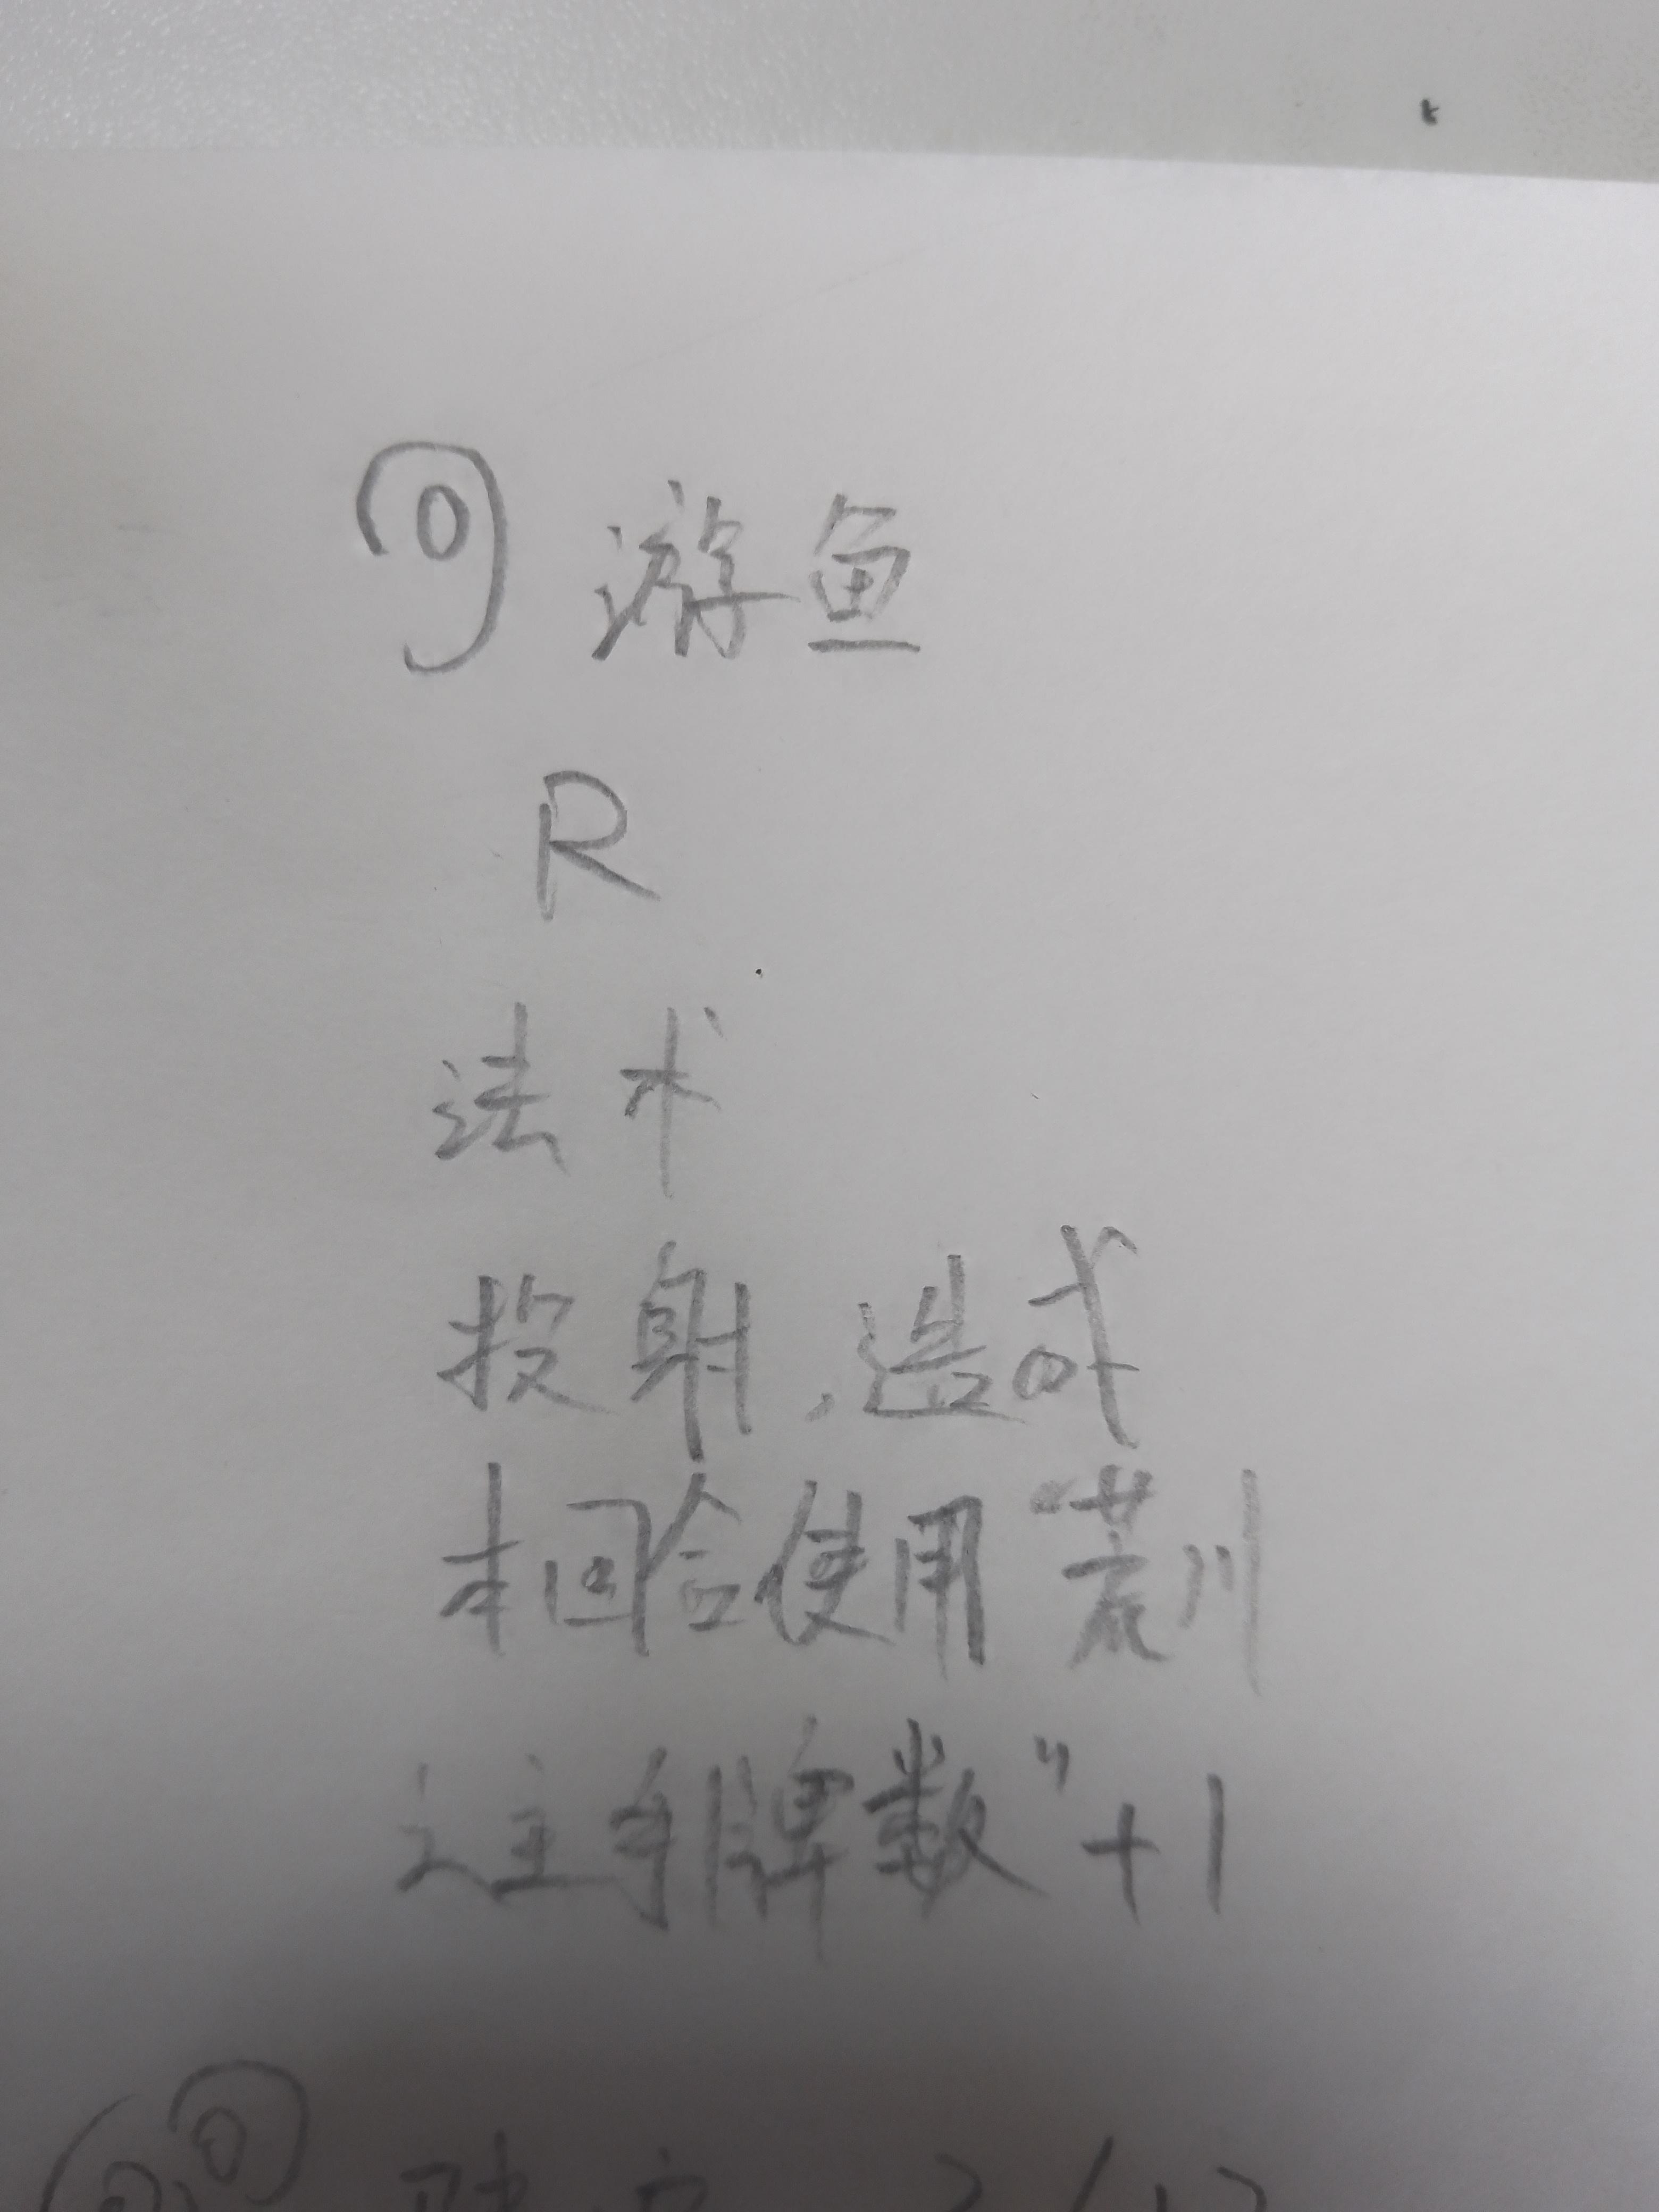 游鱼
R
法术
投射，造成
本回合使用“荒川
之主手牌数”+1